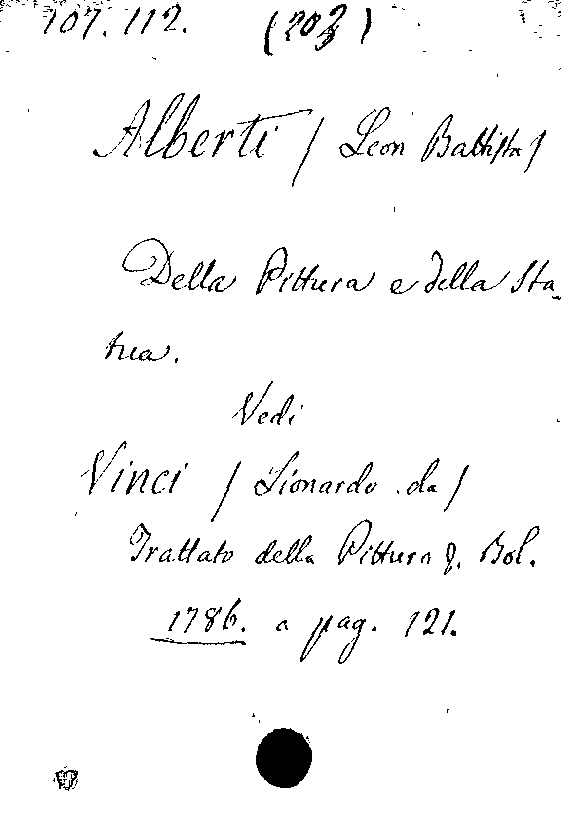 107.112. (203)
Alberti / Leon Battista /
Della Pittura e della Sta-
tua.
Vedi
Vinci / Lionardo da /
Trattato della Pittura &. Bol.
1786. a pag. 121.